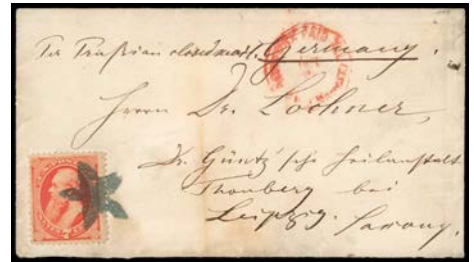 Per Prussian closed mail. Germany.
Herrn Dr. Lochner,
Dr. Güntz'sche Heilanstalt
Thonberg bei
Leipzig. Saxony.
PAID